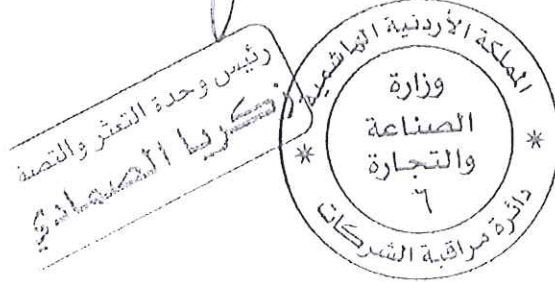 رئيس وحدة التعثر والتصف
زكريا الصمادي
المملكة الأردنية الهاشمية
وزارة
الصناعة
والتجارة
٦
دائرة مراقبة الشركات